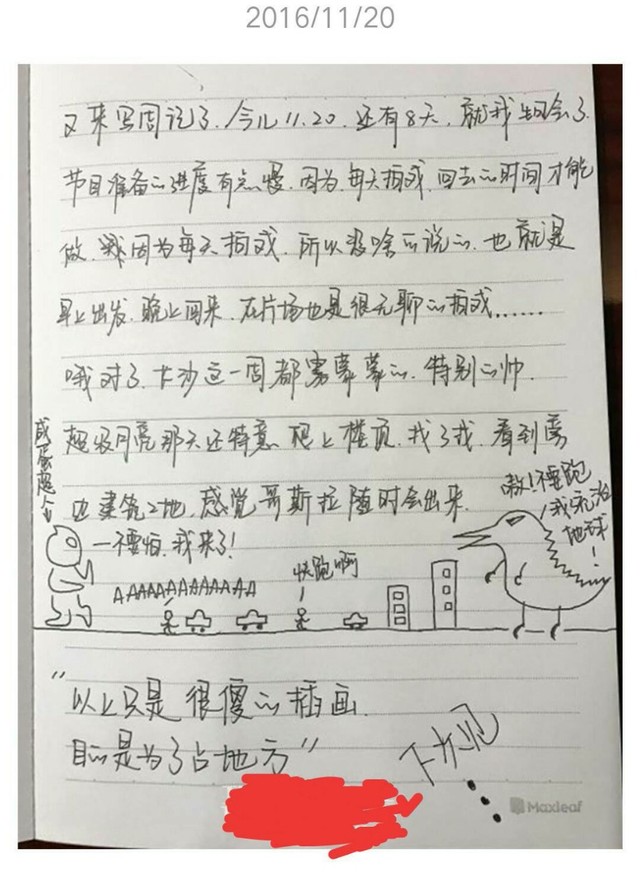 2016/11/20
又来写周记了.今儿11.20.还有8天.就我生日会了.
节目准备的进度有点慢.因为每天拍戏.回去的时间才能
做.戏因为每天拍戏.所以没啥可说的.也就是
早上出发.晚上回来.在片场也是很无聊的拍戏......
哦对了.长沙这一周都雾蒙蒙的.特别的帅.
超级月亮那天还特意爬上楼顶.找了找.看到旁
边建筑工地.感觉哥斯拉随时会出来.
咸蛋超人
一不要怕.我来了!
AAAAAAAAAAAAA
快跑啊
嗷!不要跑
我统治
地球!
"以上只是很傻的插画.
目的是为了占地方"
下次见
Maxleaf